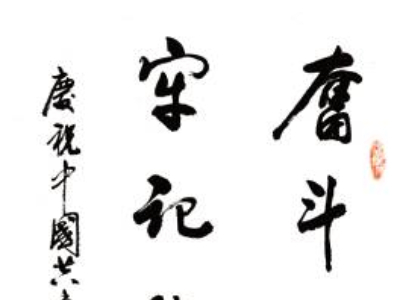 奮斗
牢记
慶祝中國共